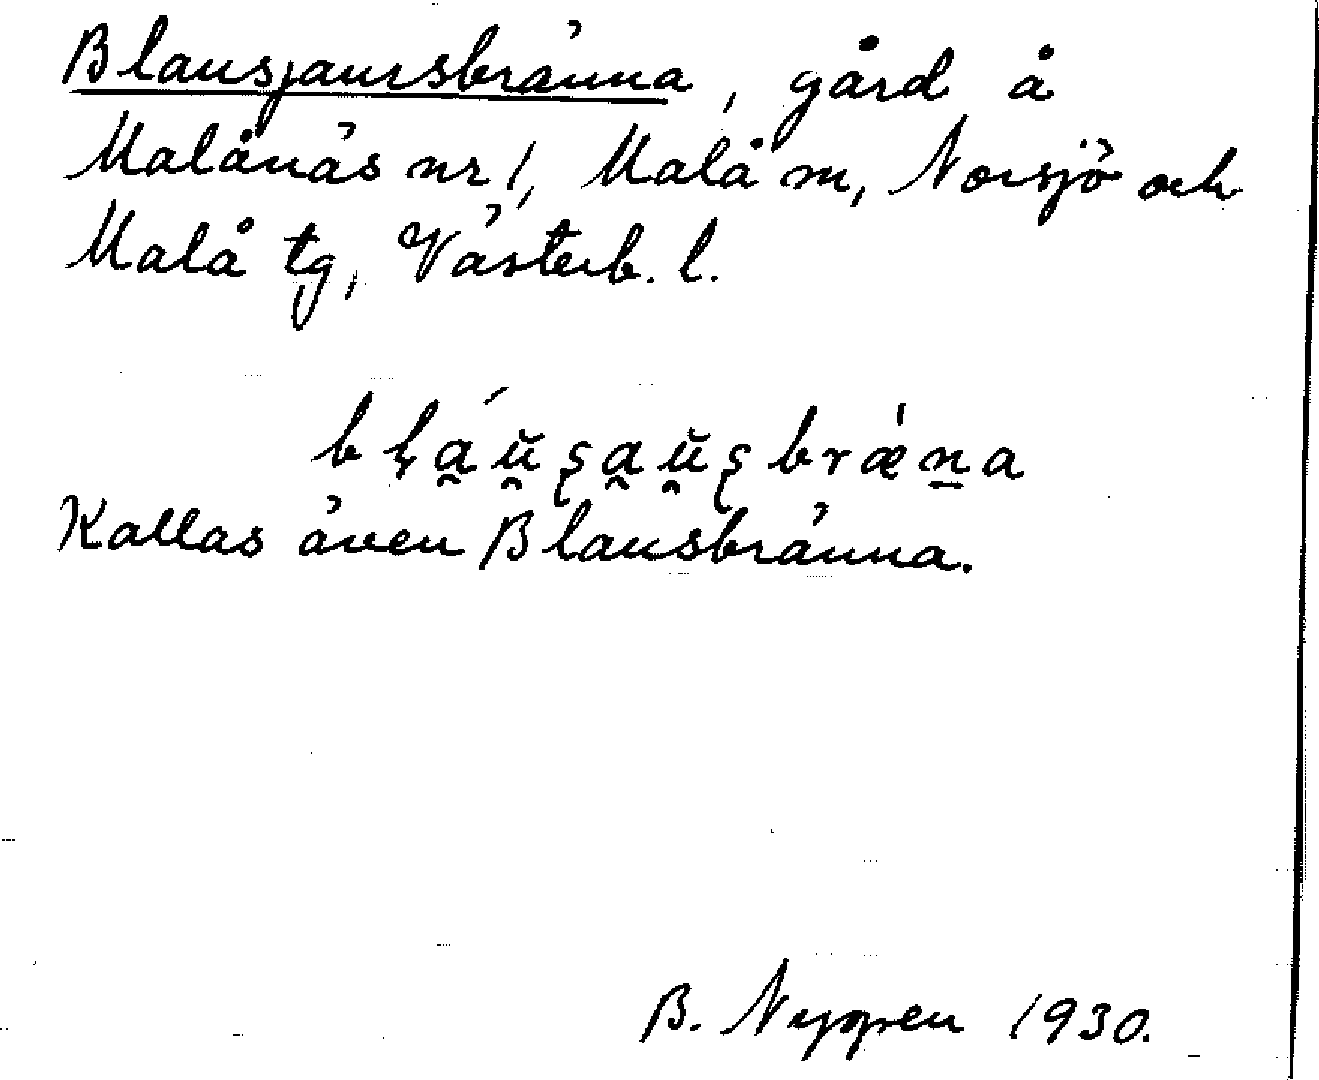 Blausjaursbränna, gård å
Malånäs nr 1, Malå m, Norsjö och
Malå tg, Västerb. l.
Kallas även Blausbränna.
B. Nygren 1930.